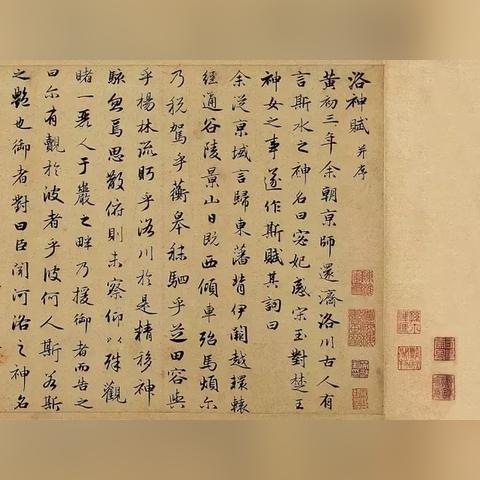 洛神賦 并序
黃初三年余朝京師還濟洛川古人有
言斯水之神名曰宓妃感宋玉對楚王
神女之事遂作斯賦其詞曰
余從京域言歸東藩背伊闕越轘轅
經通谷陵景山日既西傾車殆馬煩尔
乃税駕乎蘅皋秣駟乎芝田容與
乎楊林流眄乎洛川於是精移神
駭忽焉思散俯則未察仰以殊觀
睹一麗人于巖之畔乃援御者而告之
曰尔有覿於彼者乎彼何人斯若斯
之艷也御者對曰臣聞河洛之神名